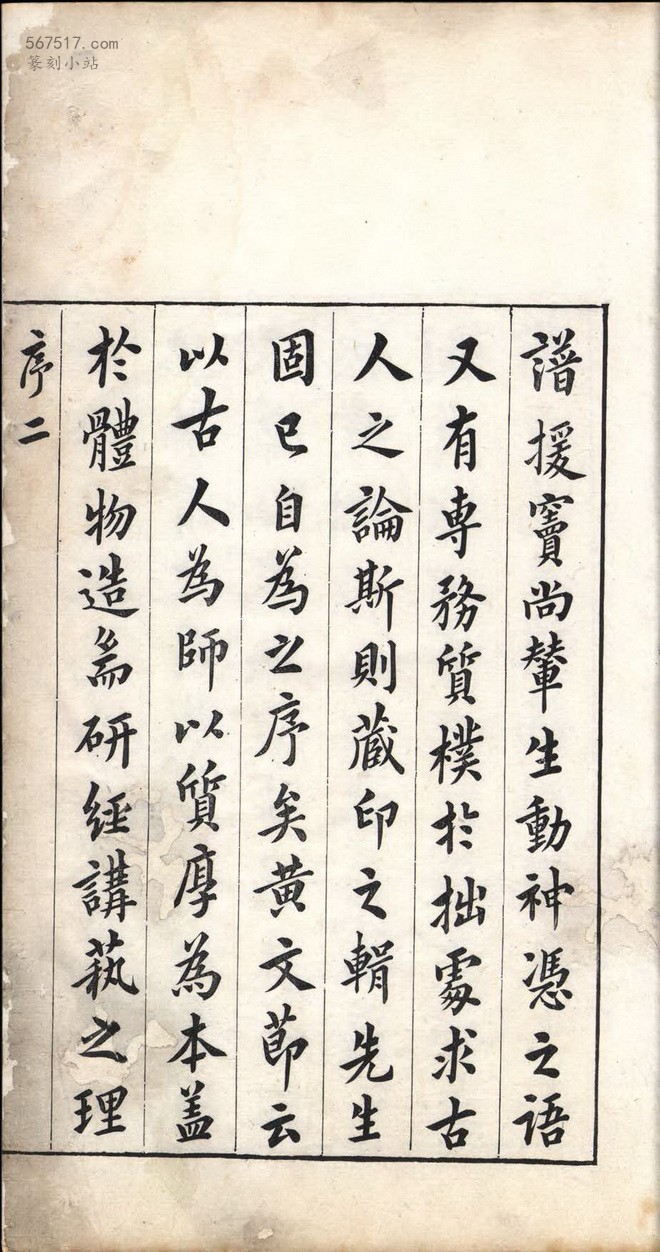 567517.com
篆刻小站
譜援竇尚輦生動神憑之語
又有專務質樸於拙處求古
人之論斯則蔵印之輯先生
固已自為之序矣黄文節云
以古人為師以質厚為本盖
於體物造耑研經講蓺之理
序二